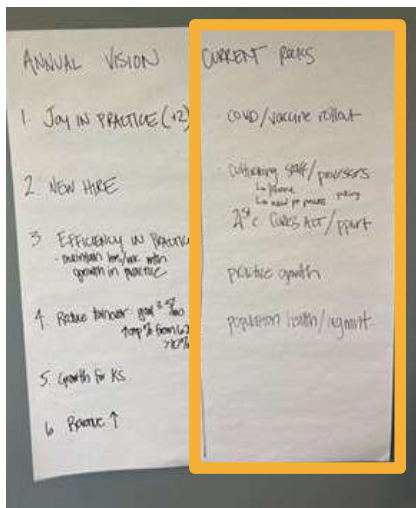 ANNUAL VISION
1. JOY IN PRACTICE (+2)
2. NEW HIRE
3. EFFICIENCY IN PRACTICE
- maintain hrs/wk with
growth in practice
4. Reduce turnover - goal
5. Growth for KS
6. Revenue ↑
CURRENT ROCKS
- COVID/vaccine rollout
- Cultivating staff/processes
↳ phone
↳ new pt process
21st c CURES ACT/
practice growth
population health/